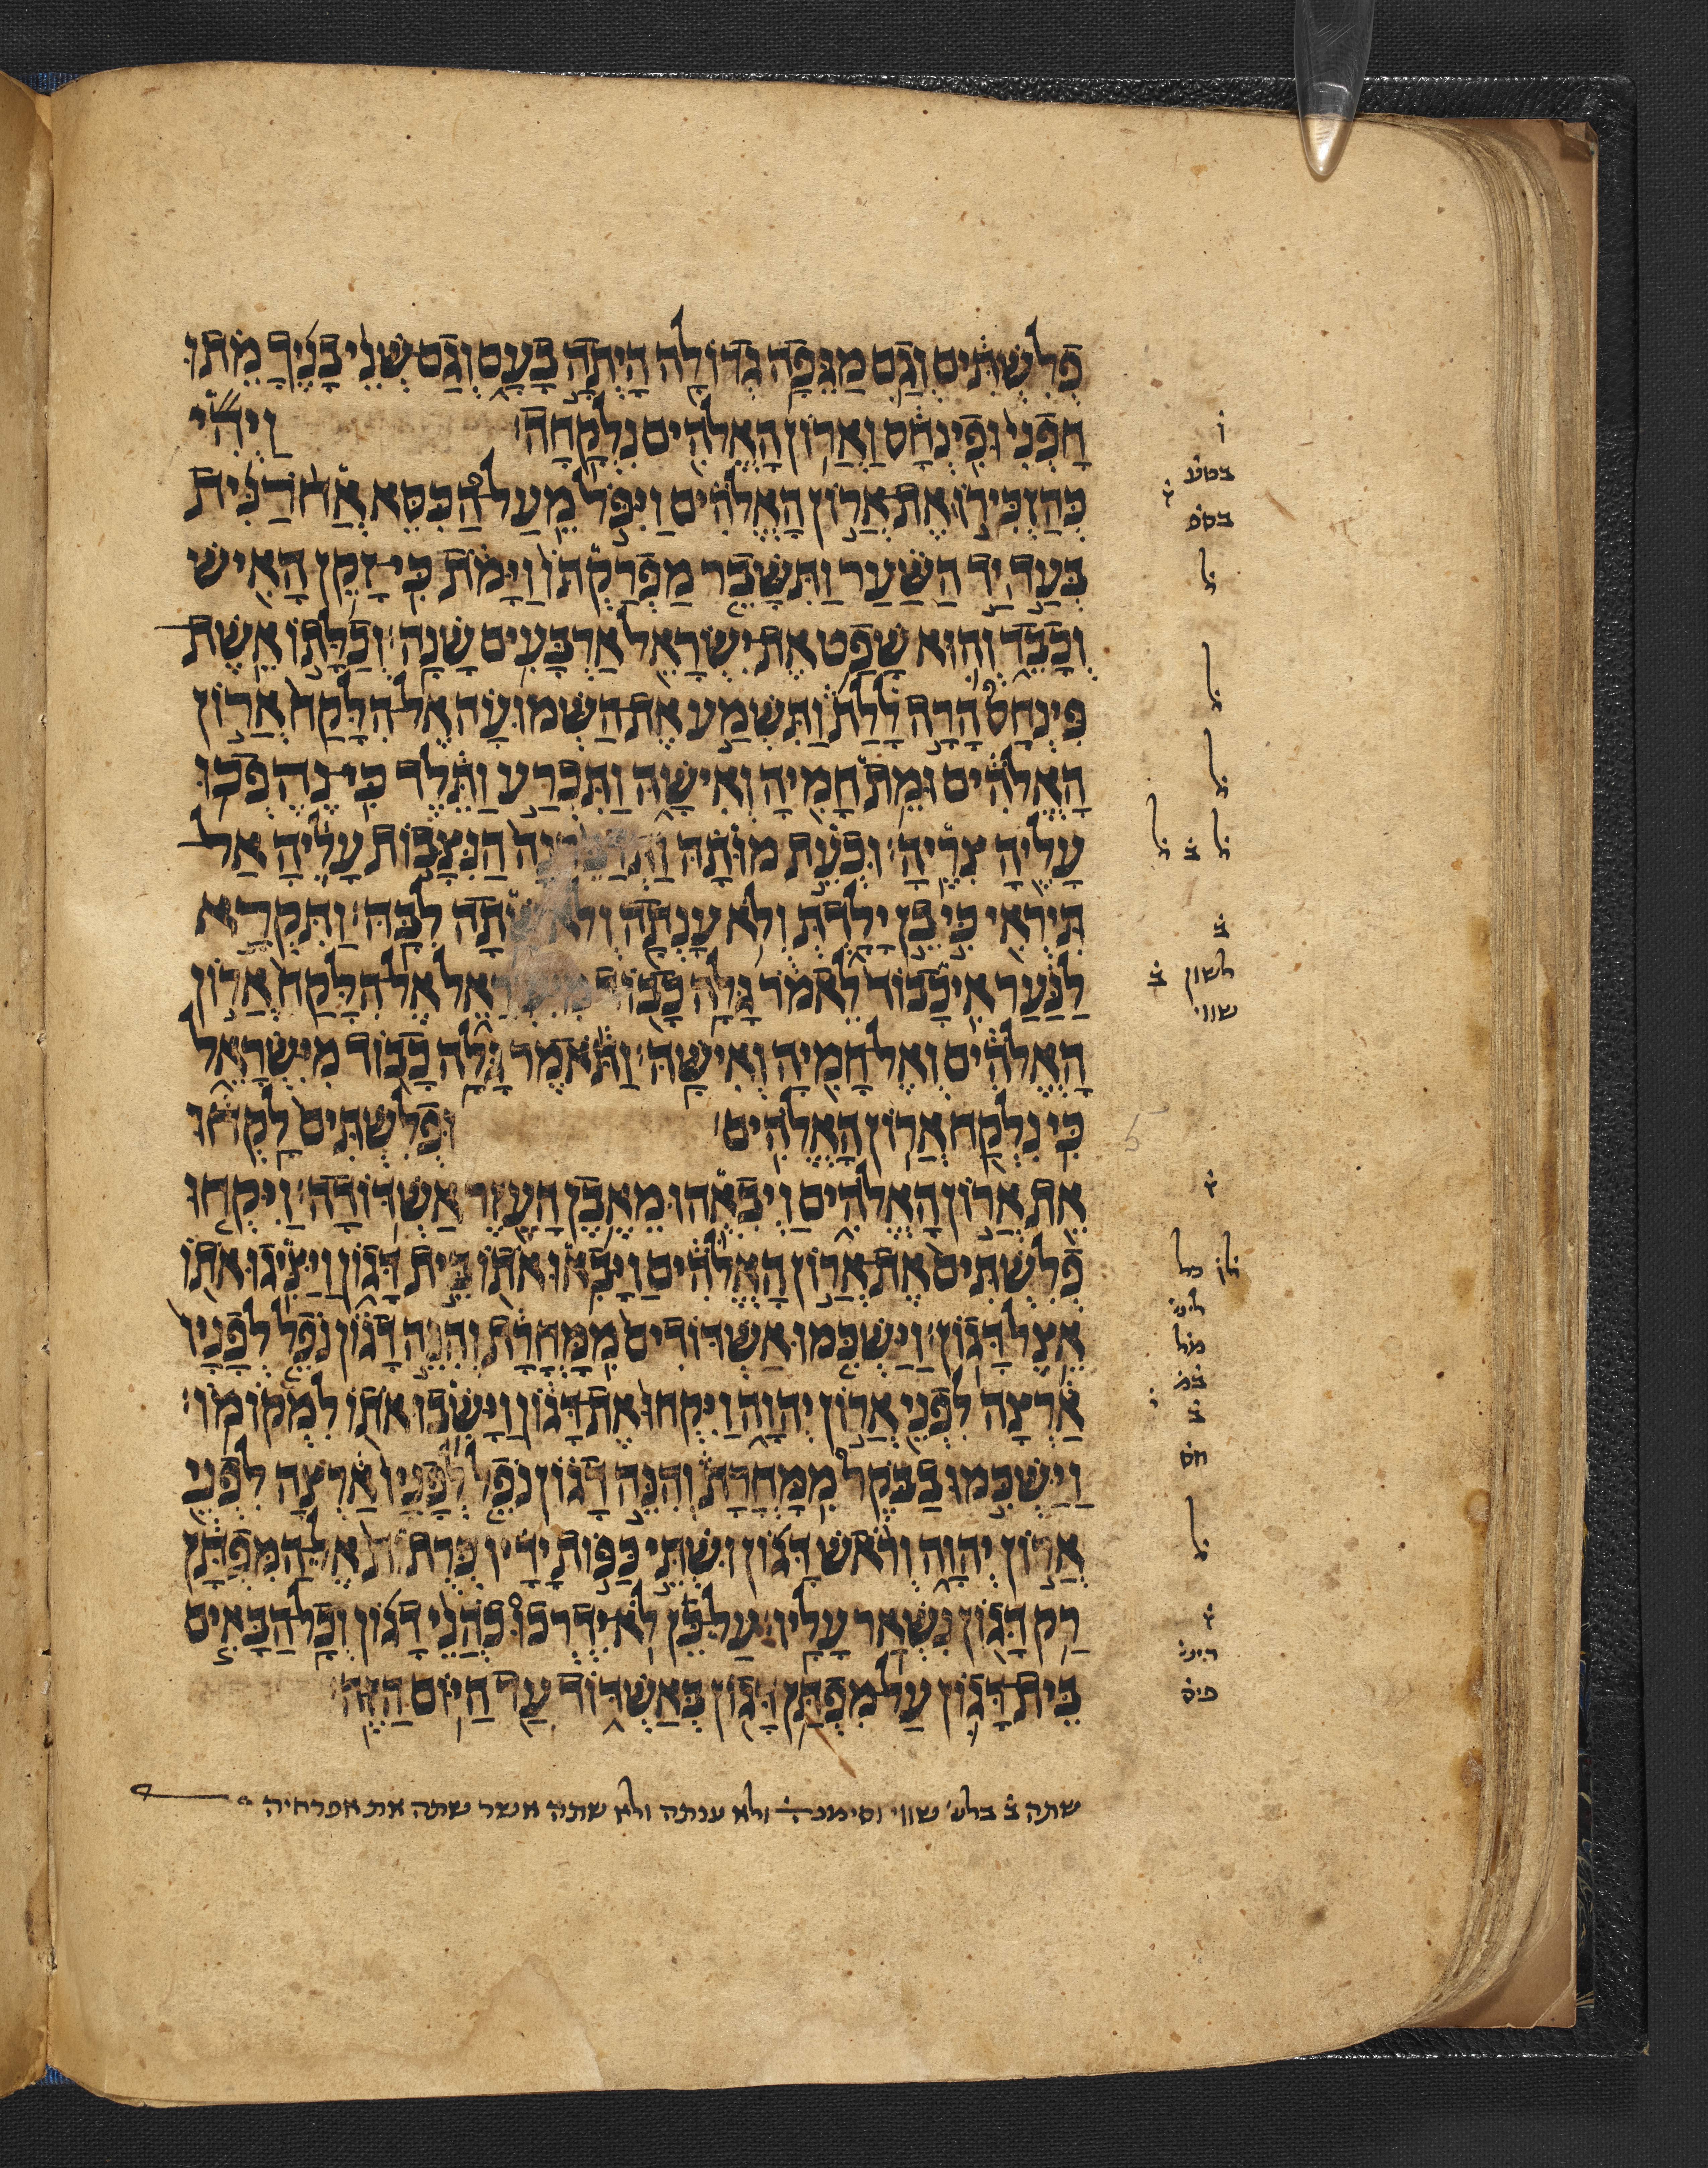 פְלִשְׁתִּים וְגַם מַגֵּפָה גְדוֹלָה הָיְתָה בָעָם וְגַם שְׁנֵי בָנֶיךָ מֵתוּ
חָפְנִי וּפִינְחָס וַאֲרוֹן הָאֱלֹהִים נִלְקָחָה׃ וַיְהִי
כְּהַזְכִּירוֹ אֶת אֲרוֹן הָאֱלֹהִים וַיִּפֹּל מֵעַל הַכִּסֵּא אֲחֹרַנִּית
בְּעַד יַד הַשַּׁעַר וַתִּשָּׁבֵר מַפְרַקְתּוֹ וַיָּמֹת כִּי זָקֵן הָאִישׁ
וְכָבֵד וְהוּא שָׁפַט אֶת יִשְׂרָאֵל אַרְבָּעִים שָׁנָה׃ וְכַלָּתוֹ אֵשֶׁת
פִּינְחָס הָרָה לָלַת וַתִּשְׁמַע אֶת הַשְּׁמוּעָה אֶל הִלָּקַח אֲרוֹן
הָאֱלֹהִים וּמֵת חָמִיהָ וְאִישָׁהּ וַתִּכְרַע וַתֵּלֶד כִּי נֶהֶפְכוּ
עָלֶיהָ צִרֶיהָ׃ וּכְעֵת מוּתָהּ הַנִּצָּבוֹת עָלֶיהָ אַל
תִּירְאִי כִּי בֵן יָלָדְתְּ וְלֹא עָנְתָה וְלֹא שָׁתָה לִבָּהּ׃ וַתִּקְרָא
לַנַּעַר אִי כָבוֹד לֵאמֹר גָּלָה כָבוֹד מִיִּשְׂרָאֵל אֶל הִלָּקַח אֲרוֹן
הָאֱלֹהִים וְאֶל חָמִיהָ וְאִישָׁהּ׃ וַתֹּאמֶר גָּלָה כָבוֹד מִיִּשְׂרָאֵל
כִּי נִלְקַח אֲרוֹן הָאֱלֹהִים׃ וּפְלִשְׁתִּים לָקְחוּ
אֵת אֲרוֹן הָאֱלֹהִים וַיְבִאֻהוּ מֵאֶבֶן הָעֵזֶר אַשְׁדּוֹדָה׃ וַיִּקְחוּ
פְלִשְׁתִּים אֶת אֲרוֹן הָאֱלֹהִים וַיָּבִאוּ אֹתוֹ בֵּית דָּגוֹן וַיַּצִּיגוּ אֹתוֹ
אֵצֶל דָּגוֹן׃ וַיַּשְׁכִּמוּ אַשְׁדּוֹדִים מִמָּחֳרָת וְהִנֵּה דָגוֹן נֹפֵל לְפָנָיו
אַרְצָה לִפְנֵי אֲרוֹן יְהוָה וַיִּקְחוּ אֶת דָּגוֹן וַיָּשִׁבוּ אֹתוֹ לִמְקוֹמוֹ׃
וַיַּשְׁכִּמוּ בַבֹּקֶר מִמָּחֳרָת וְהִנֵּה דָגוֹן נֹפֵל לְפָנָיו אַרְצָה לִפְנֵי
אֲרוֹן יְהוָה וְרֹאשׁ דָּגוֹן וּשְׁתֵּי כַּפּוֹת יָדָיו כְּרֻתוֹת אֶל הַמִּפְתָּן
רַק דָּגוֹן נִשְׁאַר עָלָיו׃ עַל כֵּן לֹא יִדְרְכוּ כֹהֲנֵי דָגוֹן וְכָל הַבָּאִים
בֵּית דָּגוֹן עַל מִפְתַּן דָּגוֹן בְּאַשְׁדּוֹד עַד הַיּוֹם הַזֶּה׃
בטע
בסס
ל
ל
ל
ל ב ל
ב
לשון ב
שווי
חס
ל
שתה ב בלש שווי וסימנה ולא ענתה ולא שתה אשר שתה את אפרחיה